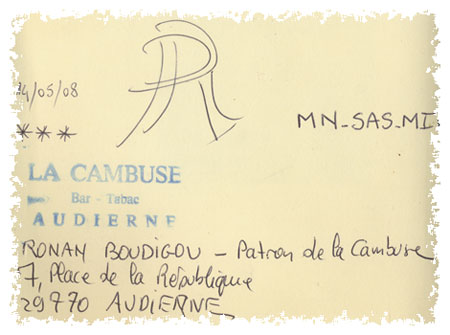 24/05/08
***
MN-SAS-MI
LA CAMBUSE
Bar - Tabac
AUDIERNE
RONAN BOUDIGOU - Patron de la Cambuse
7, Place de la République
29770 AUDIERNE